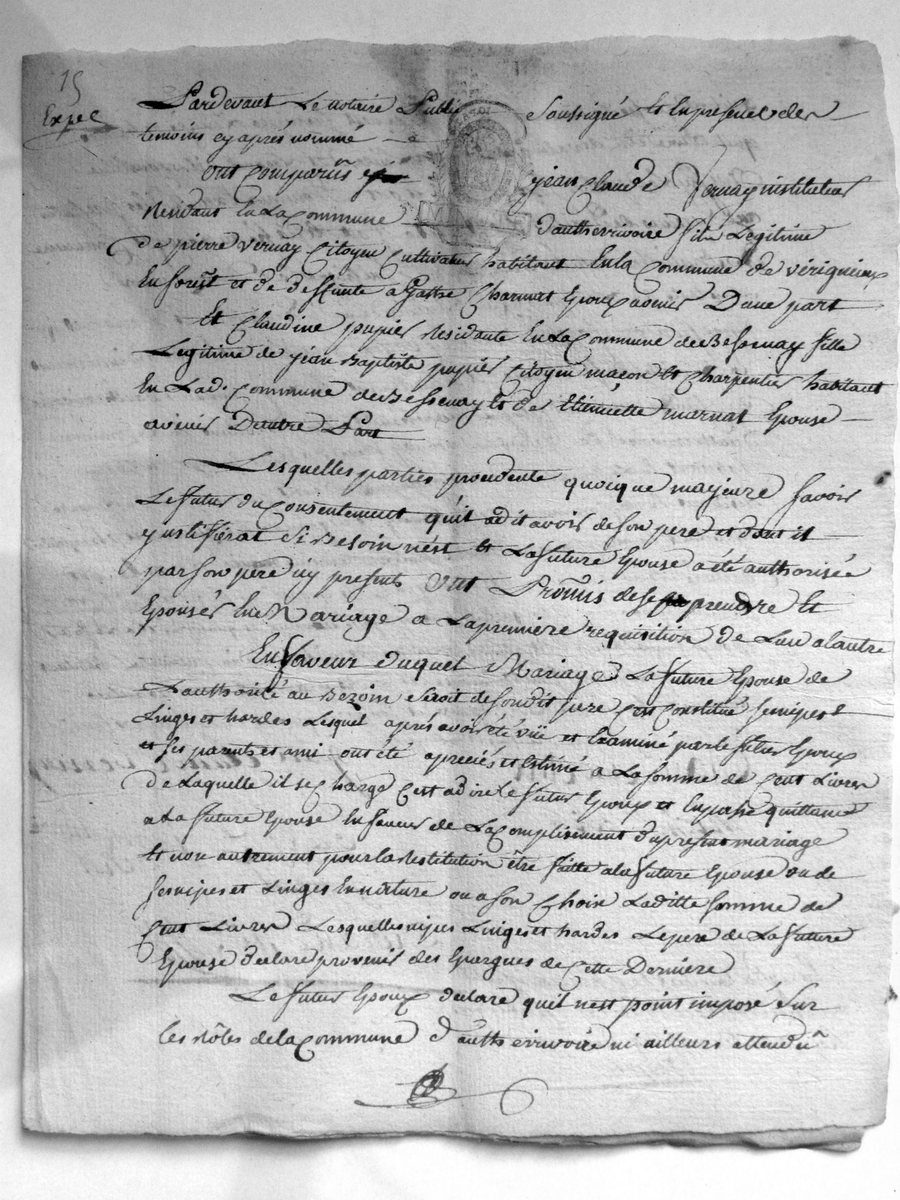 15
Expéé
Pardevant Le notaire Public Soussigné Et En presence des
temoins cy après nommé
ont Comparûs jean Claude Vernay instituteur
Residant En La Commune d'authevrivoire fils Legitime
de pierre Vernay Citoyen Cultivateur habitant En la Commune de vérigneux
En forest et de deffunte Epoux avenir D'une part
Et Claudine pupier Residante En La Commune de Bessenay fille
Legitime de jean Baptiste pupier Citoyen macon Et Charpentier habitant
En Lad.e Commune de Bessenay Et de Etiennette marnas Epouse
avenir D'autre Part
Lesquelles parties procedente quoique majeure savoir
Le futur du Consentement qu'il a dit avoir de son pere et dont il
justifierat Si Besoin n'est Et La future Epouse a été authorisée
par son pere icy present ont Promis de se prendre Et
Epouser En Mariage a La premiere requisition de L'un a L'autre
En faveur duquel Mariage La future Epouse de
L'authorité au Bezoin Seroit de son dit pere C'est Constitué se nipes
Linges et hardes Lesquel après avoir été vüe et Examiné par le futur Epoux
et ses parents et ami ont été apreciés et Estimé a La somme de Cent Livres
de Laquelle il se charge C'est a dire Le futur Epoux et En passe quittance
a La future Epouse En faveur de L'acomplisement du present mariage
Et non autrement pour la Restitution être faitte a la future Epouse ou de
ses nipes et Linges En nature ou a son Choix Laditte somme de
Cent Livres Lesquelles nipes Linges et hardes Le pere de La future
Epouse declare provenir des Epargues de Cette Derniere
Le futur Epoux declare qu'il n'est point imposé Sur
Les Rôles de la Commune d'auth evrivoire ni ailleurs attendu